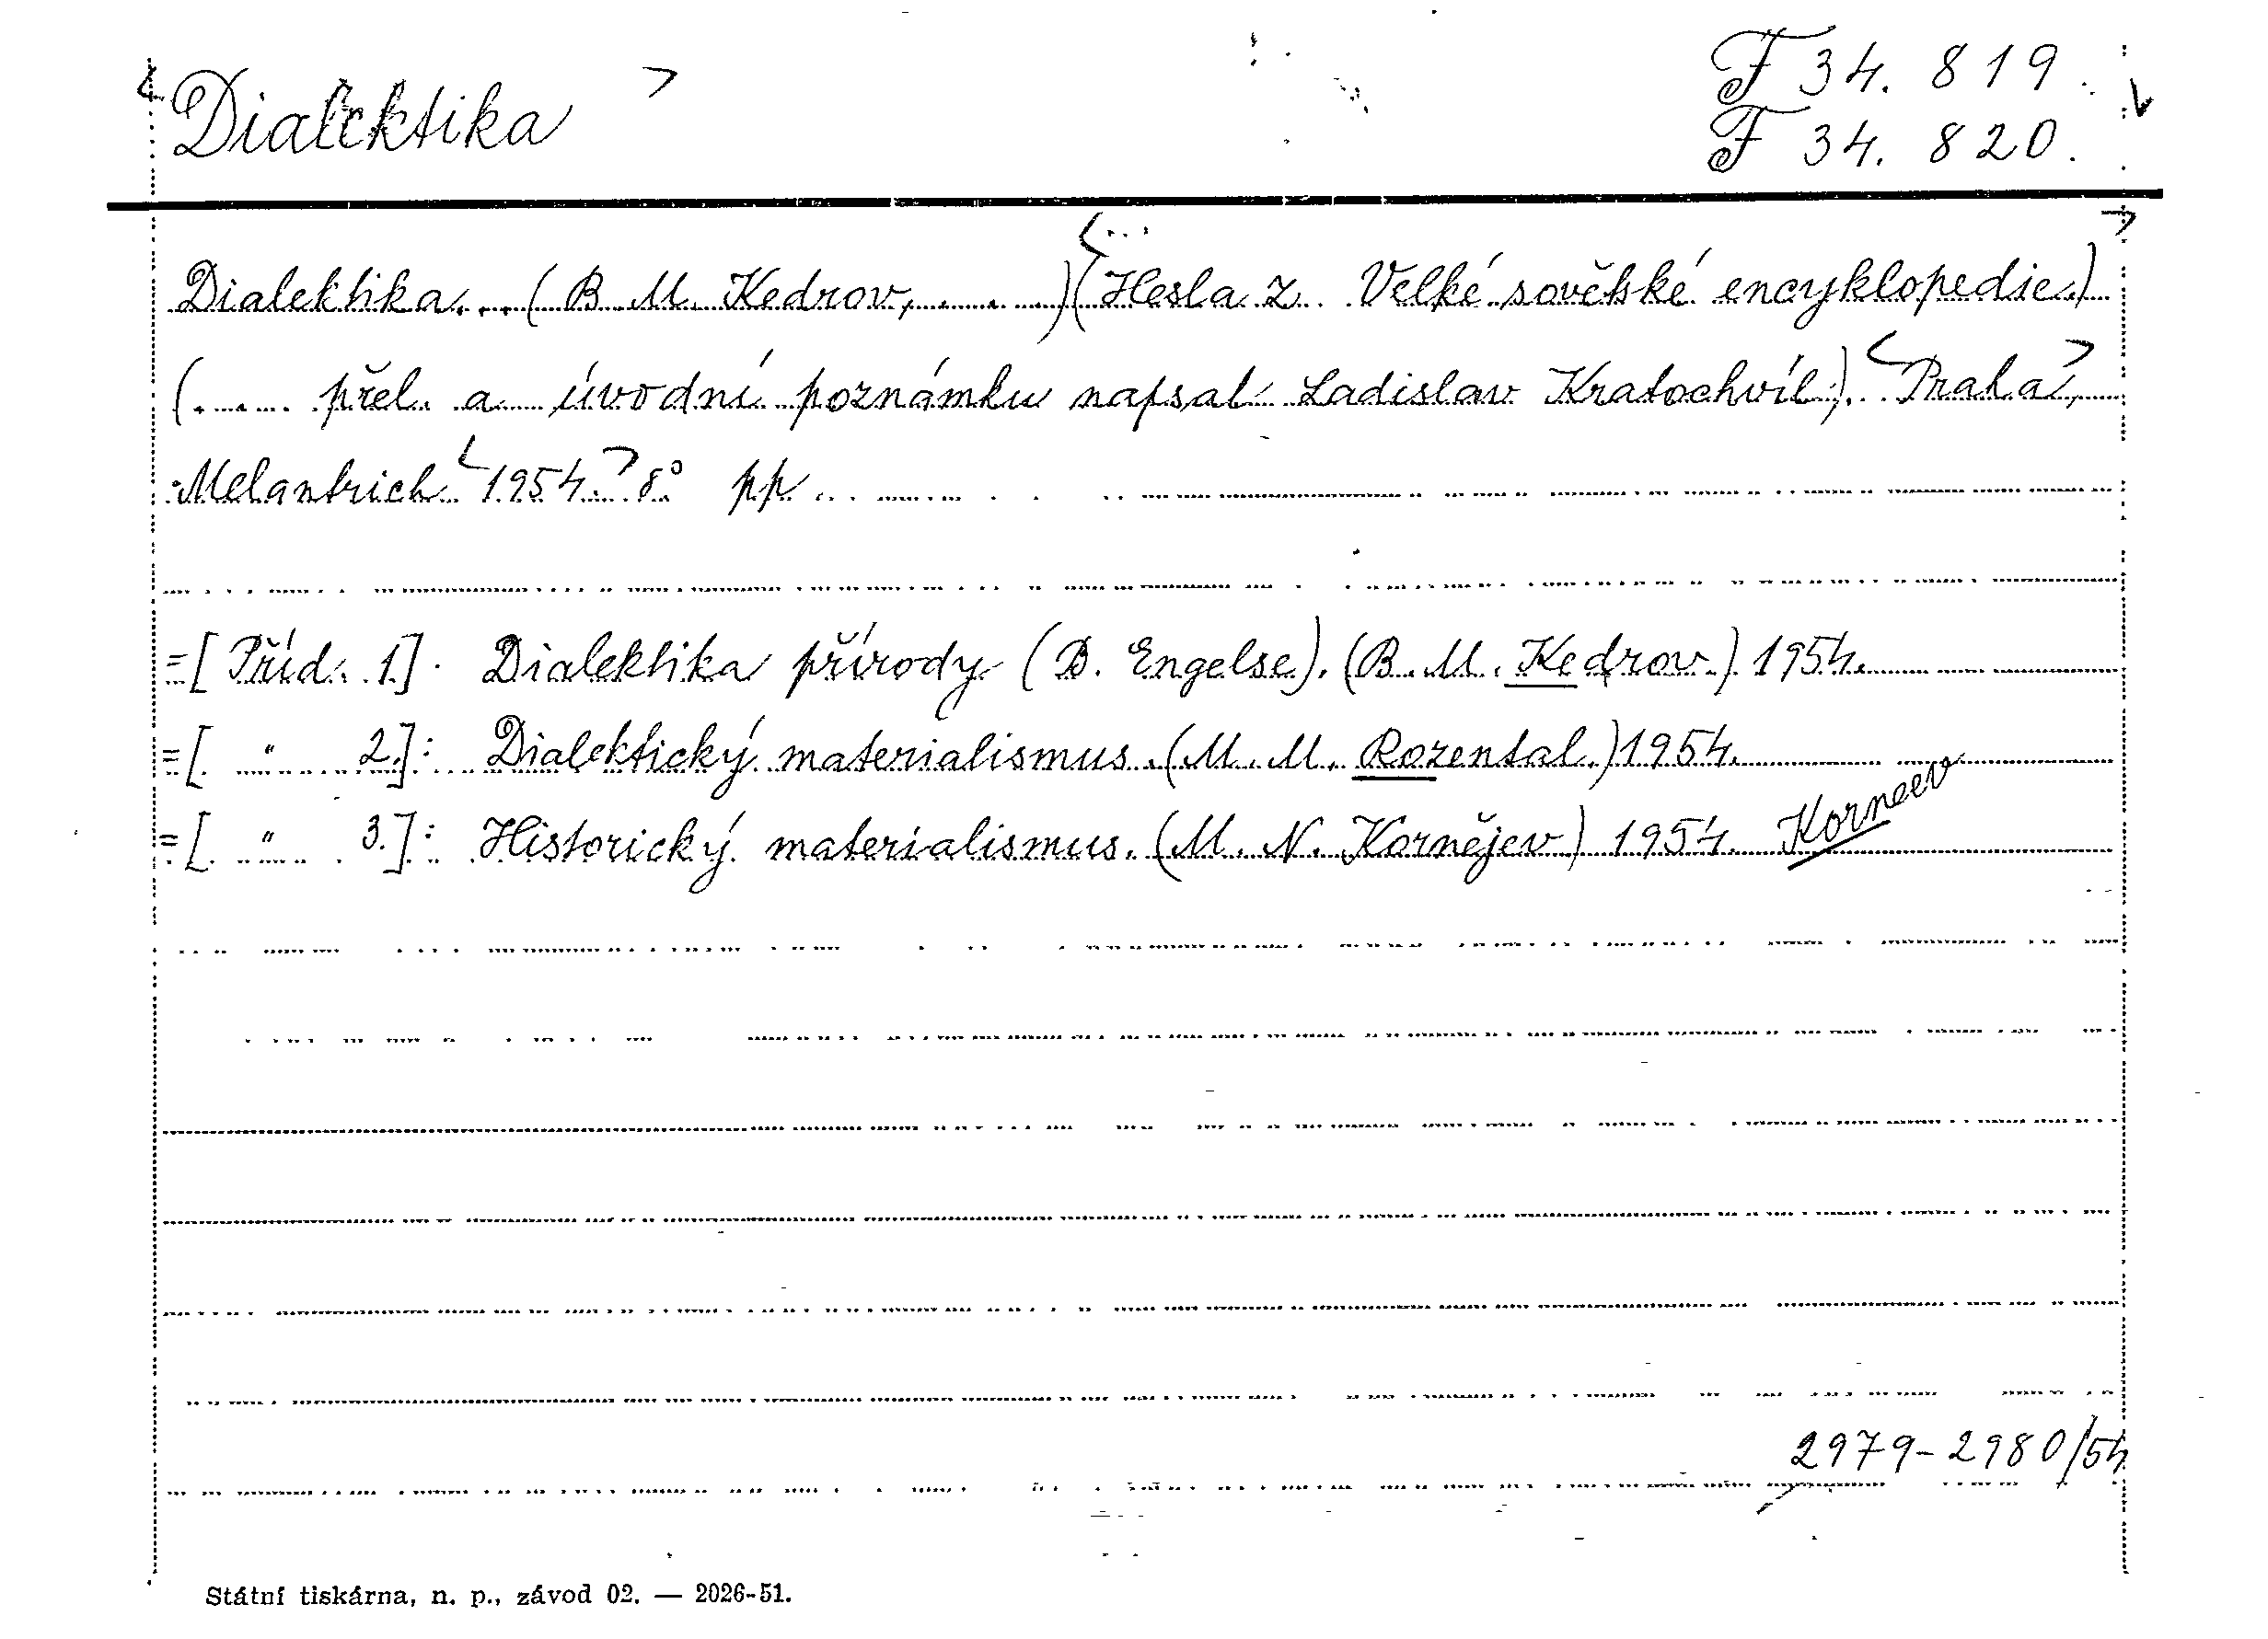 Dialektika
F 34.819.
F 34.820.
Dialektika... (B. M. Kedrov, ....) (Hesla z Velké sovětské encyklopedie.)
(..... přel. a úvodní poznámku napsal Ladislav Kratochvíl). Praha,
Melantrich 1954. 8° pp....
=[Příd. 1]. Dialektika přírody (B. Engelse). (B. M. Kedrov.) 1954.
=[ " 2.]: Dialektický materialismus. (M. M. Rozental.) 1954.
=[ " 3.]: Historický materialismus. (M. N. Kornějev) 1954. Korneev
2979-2980/54
Státní tiskárna, n. p., závod 02. — 2026-51.